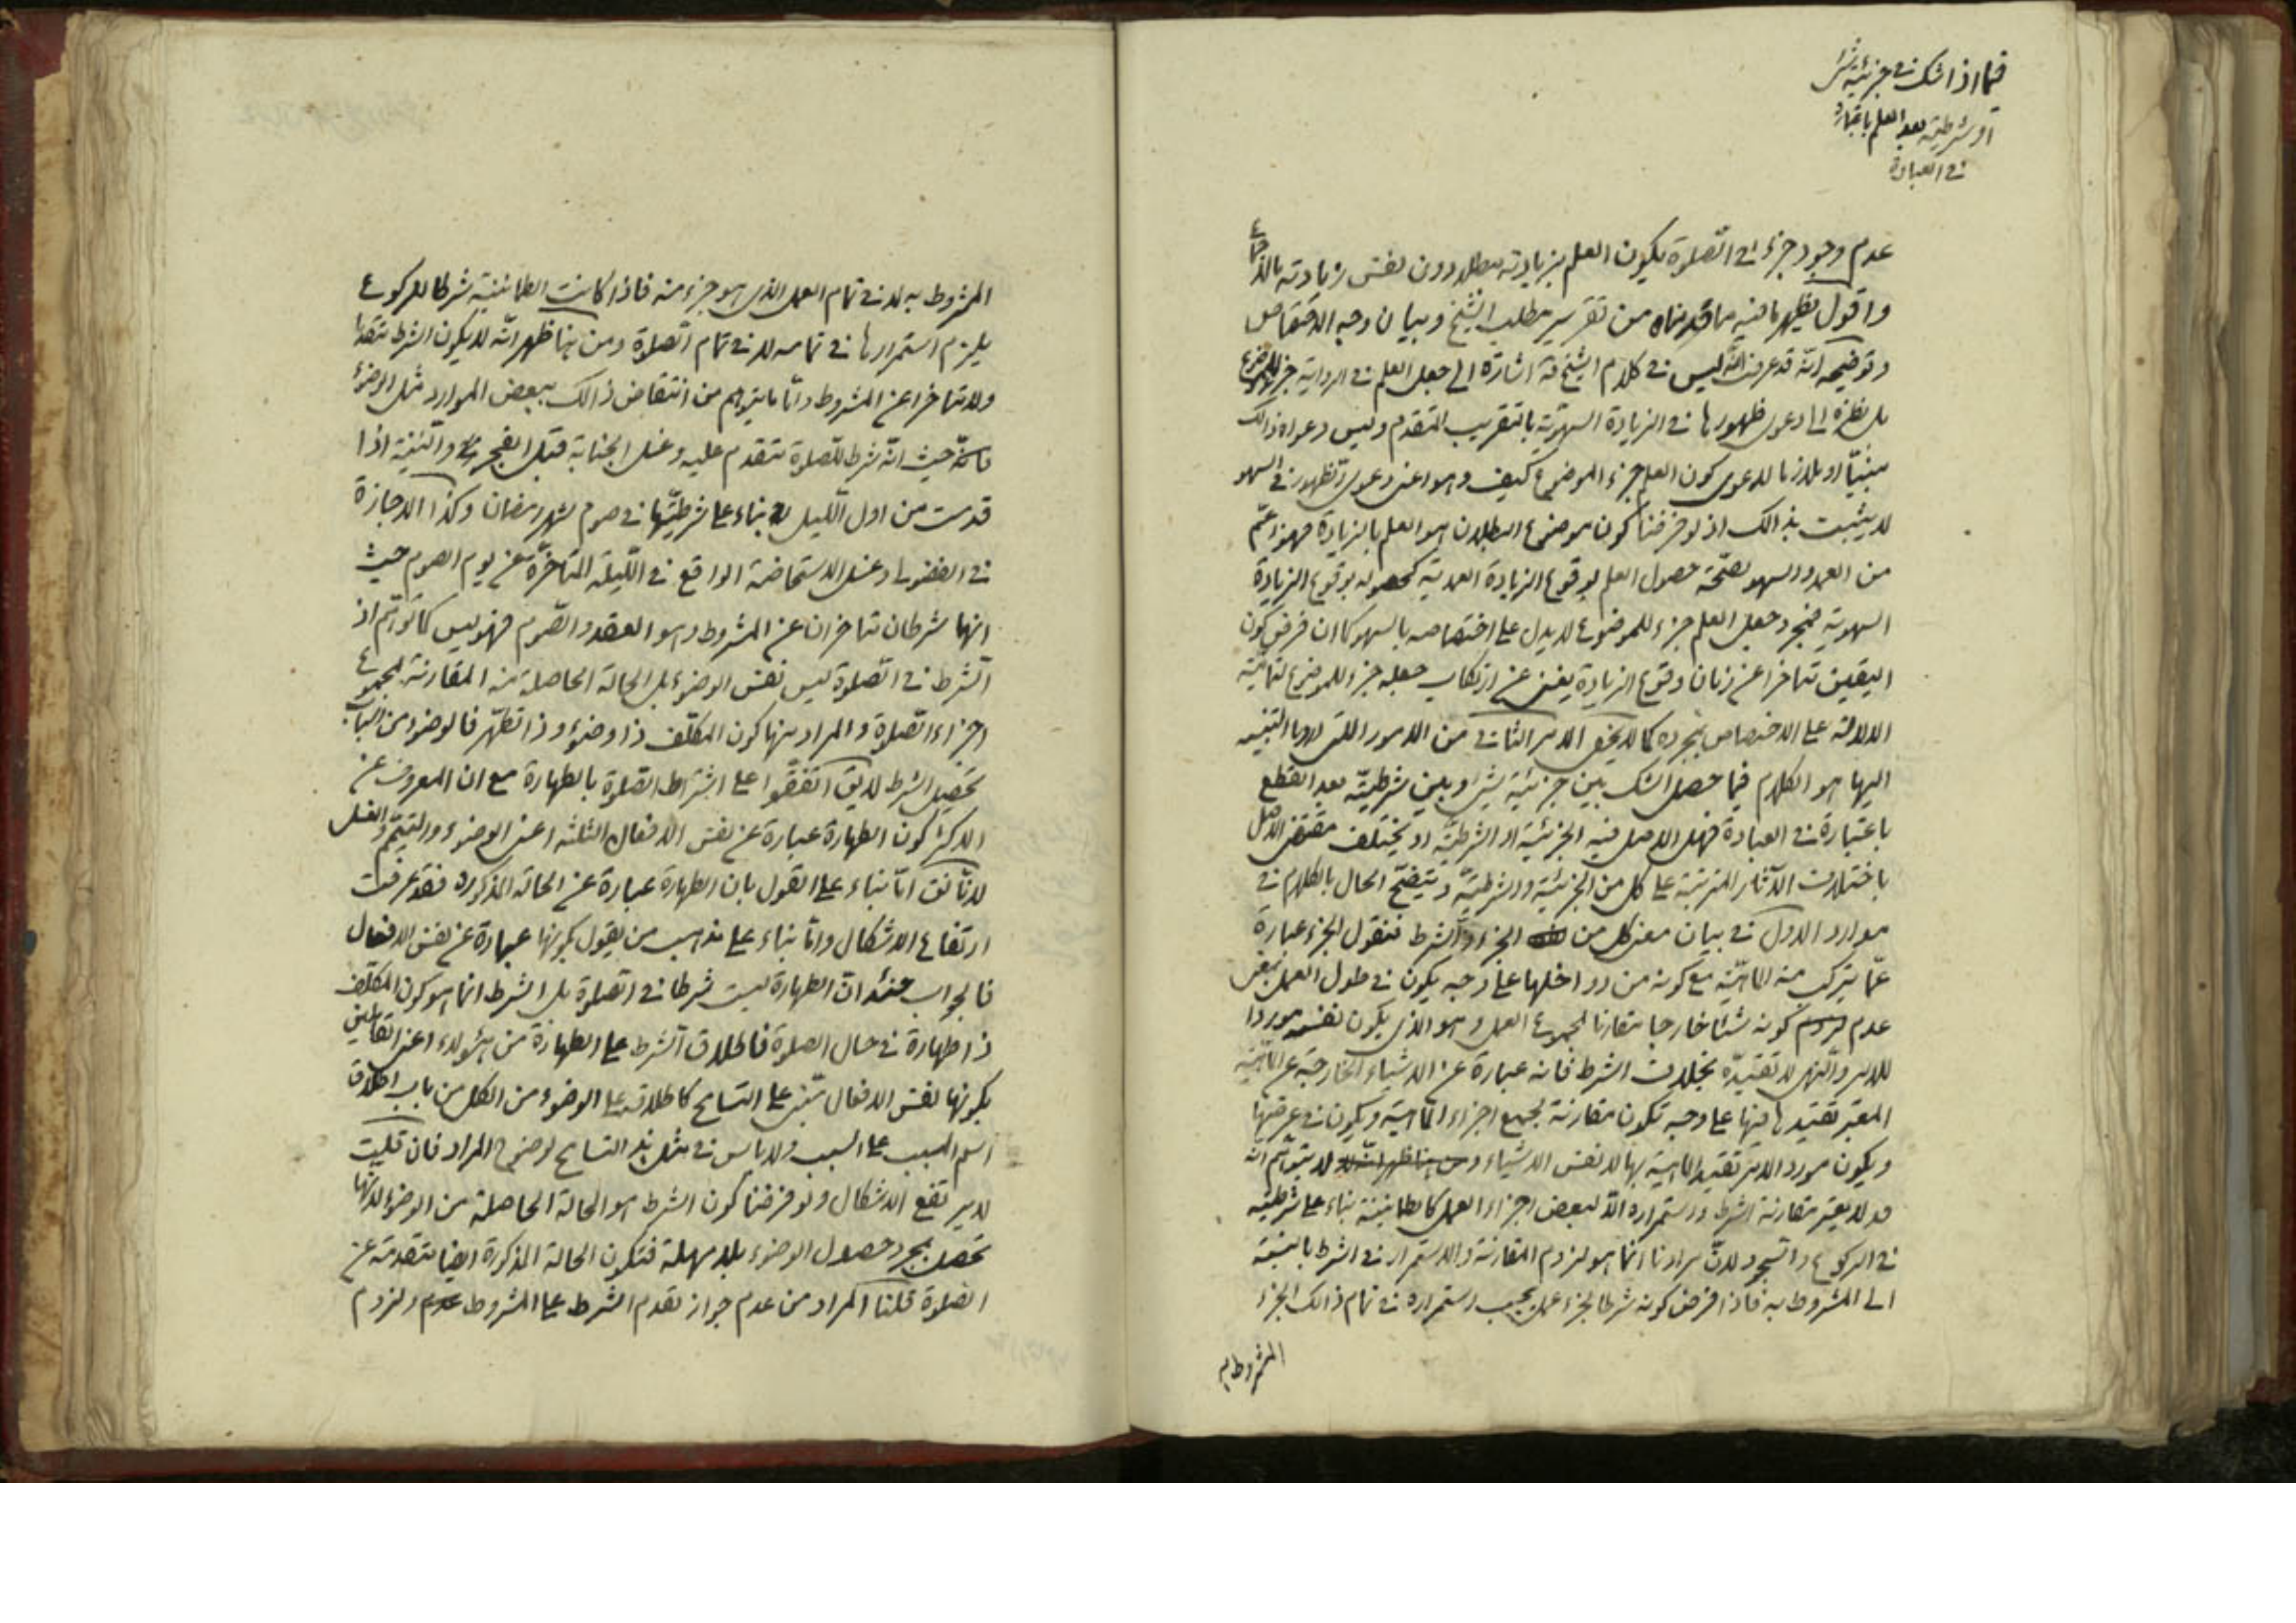 فيما اذا شك في جزئية شئ
او شرطيته بعد العلم باعتباره
في العبادة
عدم وجود جزء في الصلوة يكون العلم بزيادته مبطلا دون نفس زيادته بالاجماع
واقول يظهر ما فيه مما قدمناه من تقرير مطلب الشيخ وبيان وجه الاختصاص
وتوضيحه انه قد عرفت انه ليس في كلام الشيخ ره اشارة الى جعل العلم في الرواية جزء للموضوع
بل نظره الى دعوى ظهورها في الزيادة السهوية بالتقريب المتقدم وليس دعواه ذالك
مبنيا او ملازما لدعوى كون العلم جزء الموضوع كيف وهو اعنى دعوى الظهور في السهو
لا يثبت بذالك اذ لو فرضنا كون موضوع البطلان هو العلم بالزيادة فهو اعم
من العمد والسهو لصحة حصول العلم بوقوع الزيادة العمدية كحصوله بوقوع الزيادة
السهوية فمجرد جعل العلم جزء للموضوع لا يدل على اختصاصه بالسهو كما ان فرض كون
اليقين متاخرا عن زمان وقوع الزيادة يغنى عن ارتكاب جعله جزء للموضوع لتمامية
الدلالة على الاختصاص بمجرده كما لا يخفى الامر الثاني من الامور اللتى لابد التنبيه
اليها هو الكلام فيما حصل الشك بين جزئية شئ وبين شرطيته بعد القطع
باعتباره في العبادة فهل الاصل فيه الجزئية او الشرطية او يختلف مقتضى الاصل
باختلاف الآثار المترتبة على كل من الجزئية والشرطية ويتضح الحال بالكلام في
موارد الاول في بيان معنى كل من الجزء والشرط فنقول الجزء عبارة
عما يتركب منه الماهية مع كونه من دواخلها على وجه يكون في طول العمل بمعنى
عدم لزوم كونه شيئا خارجا مقارنا لمجموع العمل وهو الذى يكون نفسه موردا
للامر والنهى لا تقيده بخلاف الشرط فانه عبارة عن الاشياء الخارجة عن الماهية
المعتبر تقيدها فيها على وجه تكون مقارنة لجميع اجزاء الماهية ويكون في عرضها
ويكون مورد الامر تقيد الماهية بها لا نفس الاشياء ومن هنا ظهر انه لا لا يتوهم انه
قد لا يعتبر مقارنة الشرط واستمراره الا لبعض اجزاء العمل كالطمانينة بناء على شرطيته
في الركوع والسجود لان مرادنا انما هو لزوم المقارنة والاستمرار في الشرط بالنسبة
الى المشروط به فاذا فرض كونه شرطا لجزء عمل يجب استمراره في تمام ذالك الجزء
المشروط به
المشروط به لا في تمام العمل الذى هو جزء منه فاذا كانت الطمانينة شرطا للركوع
يلزم استمرارها في تمامه لا في تمام الصلوة ومن هنا ظهر انه لا يكون الشرط متقدما
ولا متاخرا عن المشروط واما ما يتوهم من انتقاض ذالك ببعض الموارد مثل الوضوء
فانه حيث انه شرط للصلوة متقدم عليه وغسل الجنابة قبل الفجر والنية اذا
قدمت من اول الليل بناء على شرطيتها في صوم شهر رمضان وكذا الاجازة
في الفضولى وغسل الاستحاضة الواقع في الليلة المتاخرة عن يوم الصوم حيث
انهما شرطان متاخران عن المشروط وهو العقد والصوم فهو ليس كما توهم اذ
الشرط في الصلوة ليس نفس الوضوء بل الحالة الحاصلة منه المقارنة لمجموع
اجزاء الصلوة والمراد منها كون المكلف ذا وضوء وذا تطهر فالوضوء من اسباب
تحصيل الشرط لا يق اتفقوا على اشتراط الصلوة بالطهارة مع ان المعروف عن
الاكثر كون الطهارة عبارة عن نفس الافعال الثلثة اعنى الوضوء والتيمم والغسل
لانا نق اما بناء على القول بان الطهارة عبارة عن الحالة المذكوره فقد عرفت
ارتفاع الاشكال واما بناء على مذهب من يقول بكونها عبارة عن نفس الافعال
فالجواب عنئذ ان الطهارة ليست شرطا في الصلوة بل الشرط انما هو كون المكلف
ذا طهارة في حال الصلوة فاطلاق الشرط على الطهارة من هؤلاء اعنى القائلين
بكونها نفس الافعال مبنى على التسامح كاطلاقه على الوضوء من الكل من باب اطلاق
اسم المسبب على السبب ولا باس في مثل هذا التسامح لوضوح المراد فان قلت
لا يرتفع الاشكال ولو فرضنا كون الشرط هو الحالة الحاصلة من الوضوء لانها
تحصل بمجرد حصول الوضوء بلا مهلة فتكون الحالة المذكورة ايضا متقدمة عن
الصلوة قلنا المراد من عدم جواز تقدم الشرط على المشروط عدم ولزوم